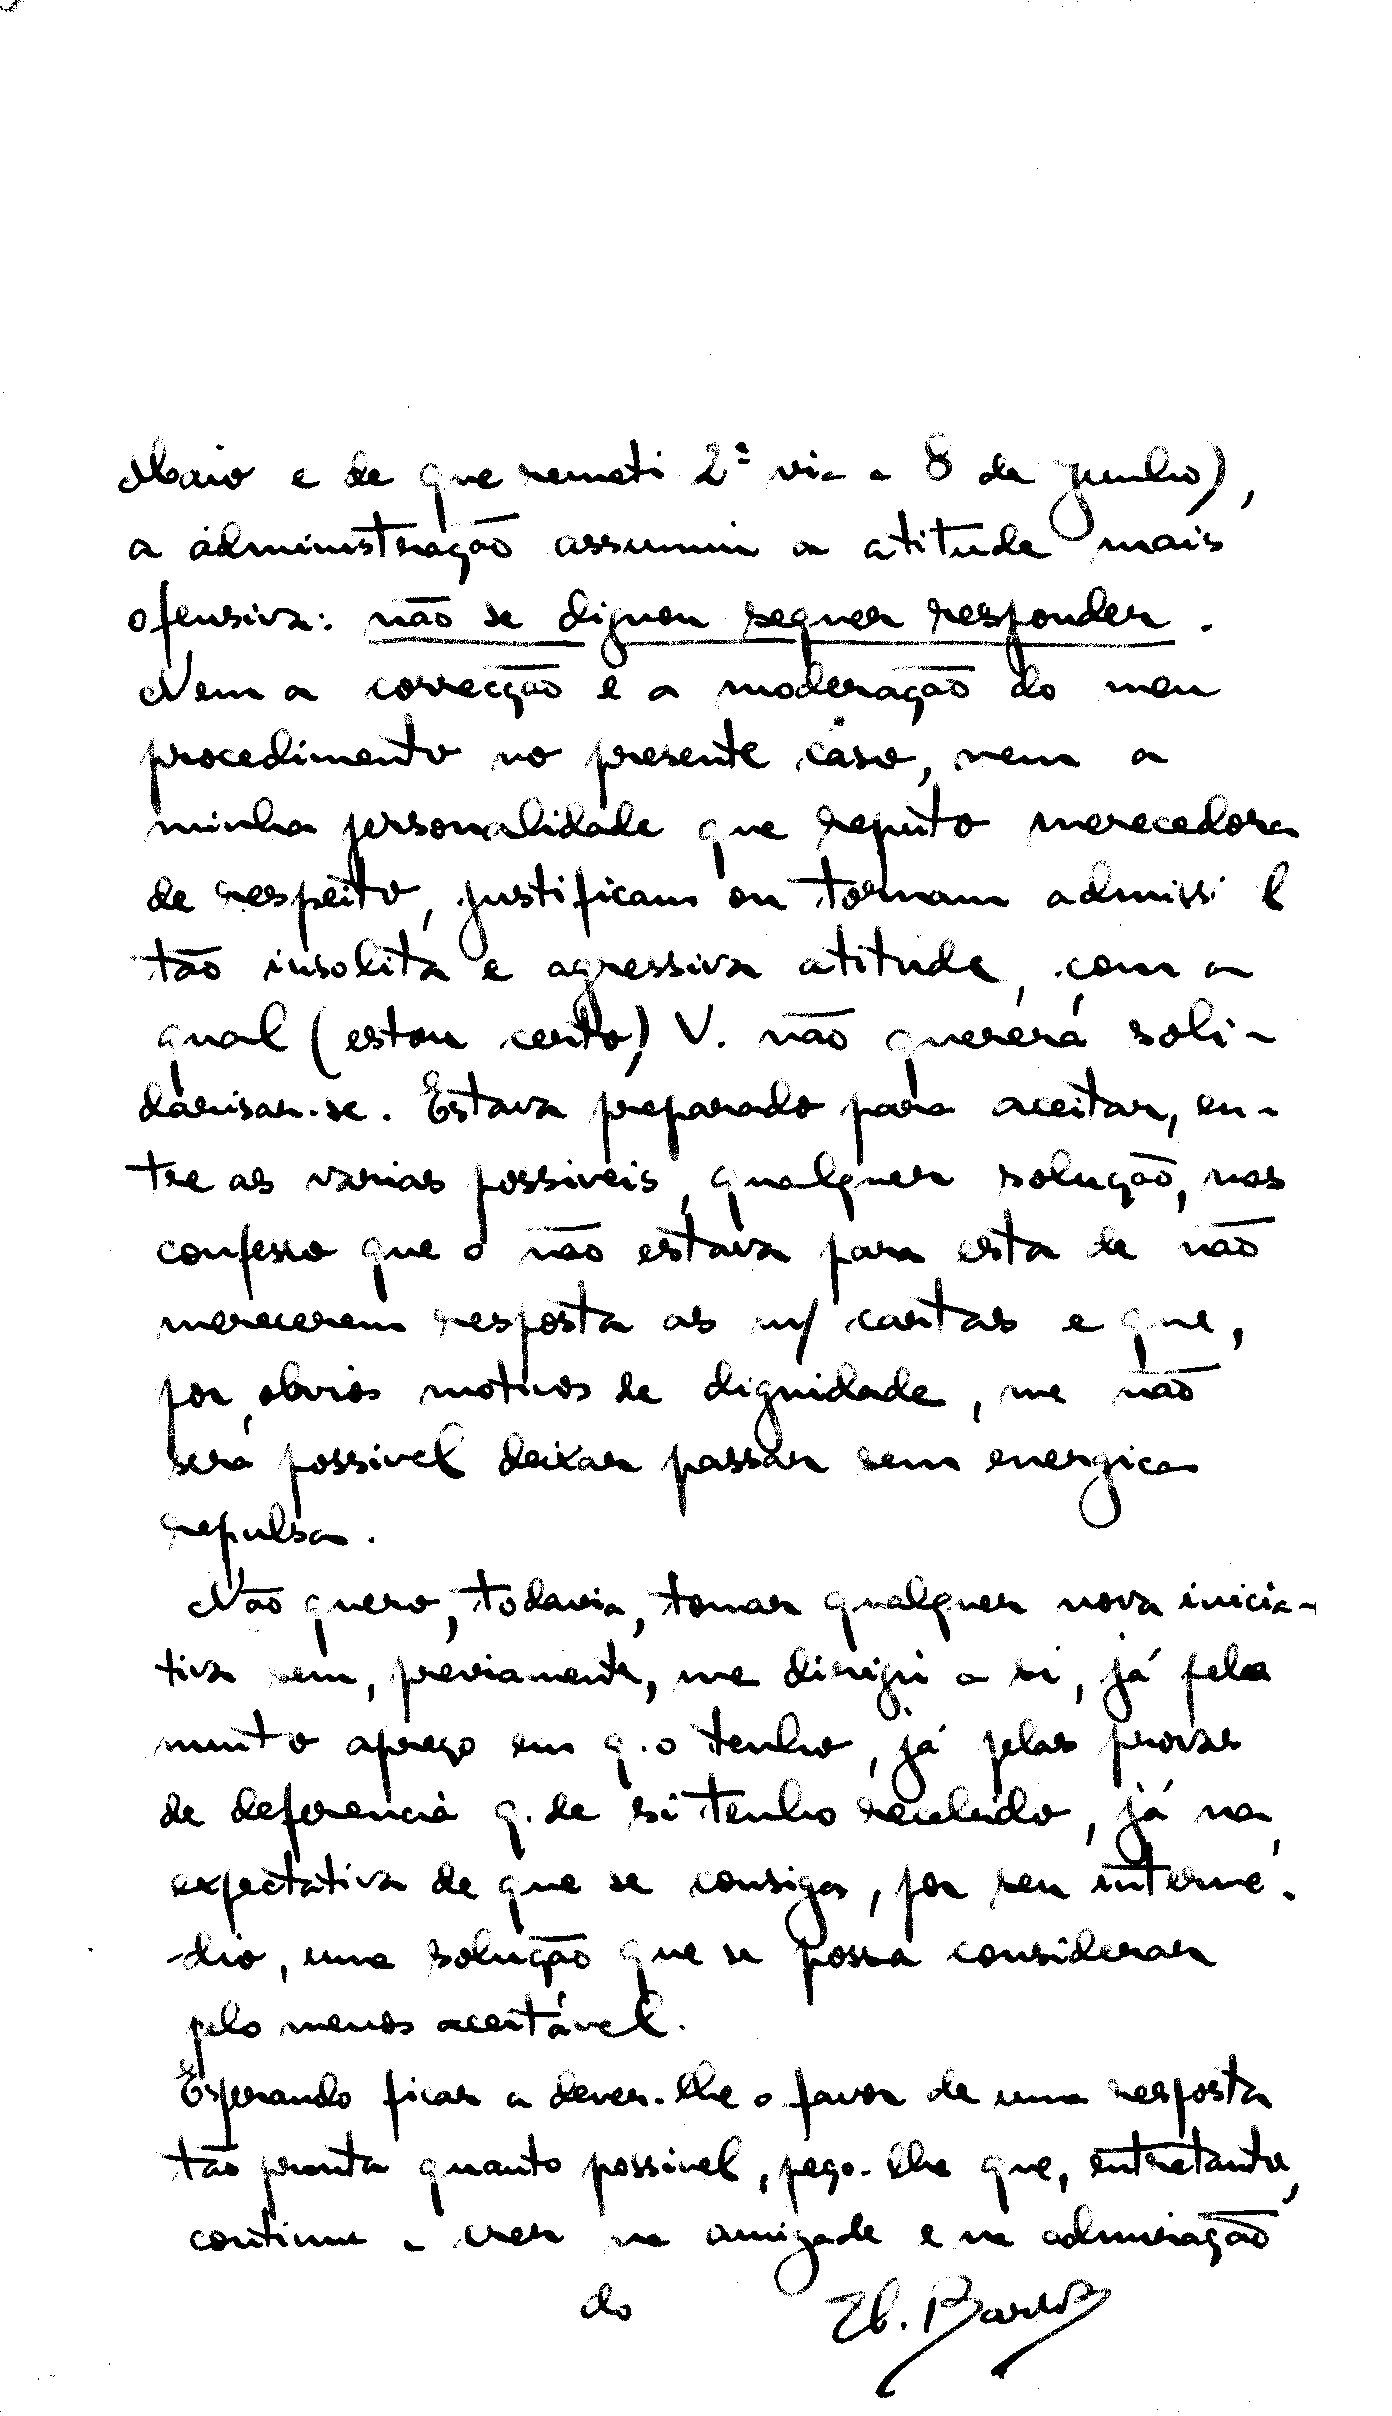 Maio e de que remeti 2ª via a 8 de junho),
a administração assumiu a atitude mais
ofensiva: não se dignou sequer responder.
Nem a correcção e a moderação do meu
procedimento no presente caso, nem a
minha personalidade que reputo merecedora
de respeito, justificam ou tornam admissi l
tão insolita e agressiva atitude, com a
qual (estou certo) V. não quererá soli-
darisar-se. Estava preparado para aceitar, en-
tre as varias possiveis, qualquer solução, mas
confesso que o não estava para esta de não
merecerem resposta as m/ cartas e que,
por obvios motivos de dignidade, me não
será possivel deixar passar sem energica
repulsa.
Não quero, todavia, tomar qualquer nova inicia-
tiva sem, previamente, me dirigir a si, já pelo
muito apreço em q. o tenho, já pelas provas
de deferencia q. de si tenho recebido, já na
expectativa de que se consiga, por seu intermé-
dio, uma solução que se possa considerar
pelo menos aceitável.
Esperando ficar a dever-lhe o favor de uma resposta
tão pronta quanto possivel, peço-lhe que, entretanto,
continue a crer na amizade e na admiração
do